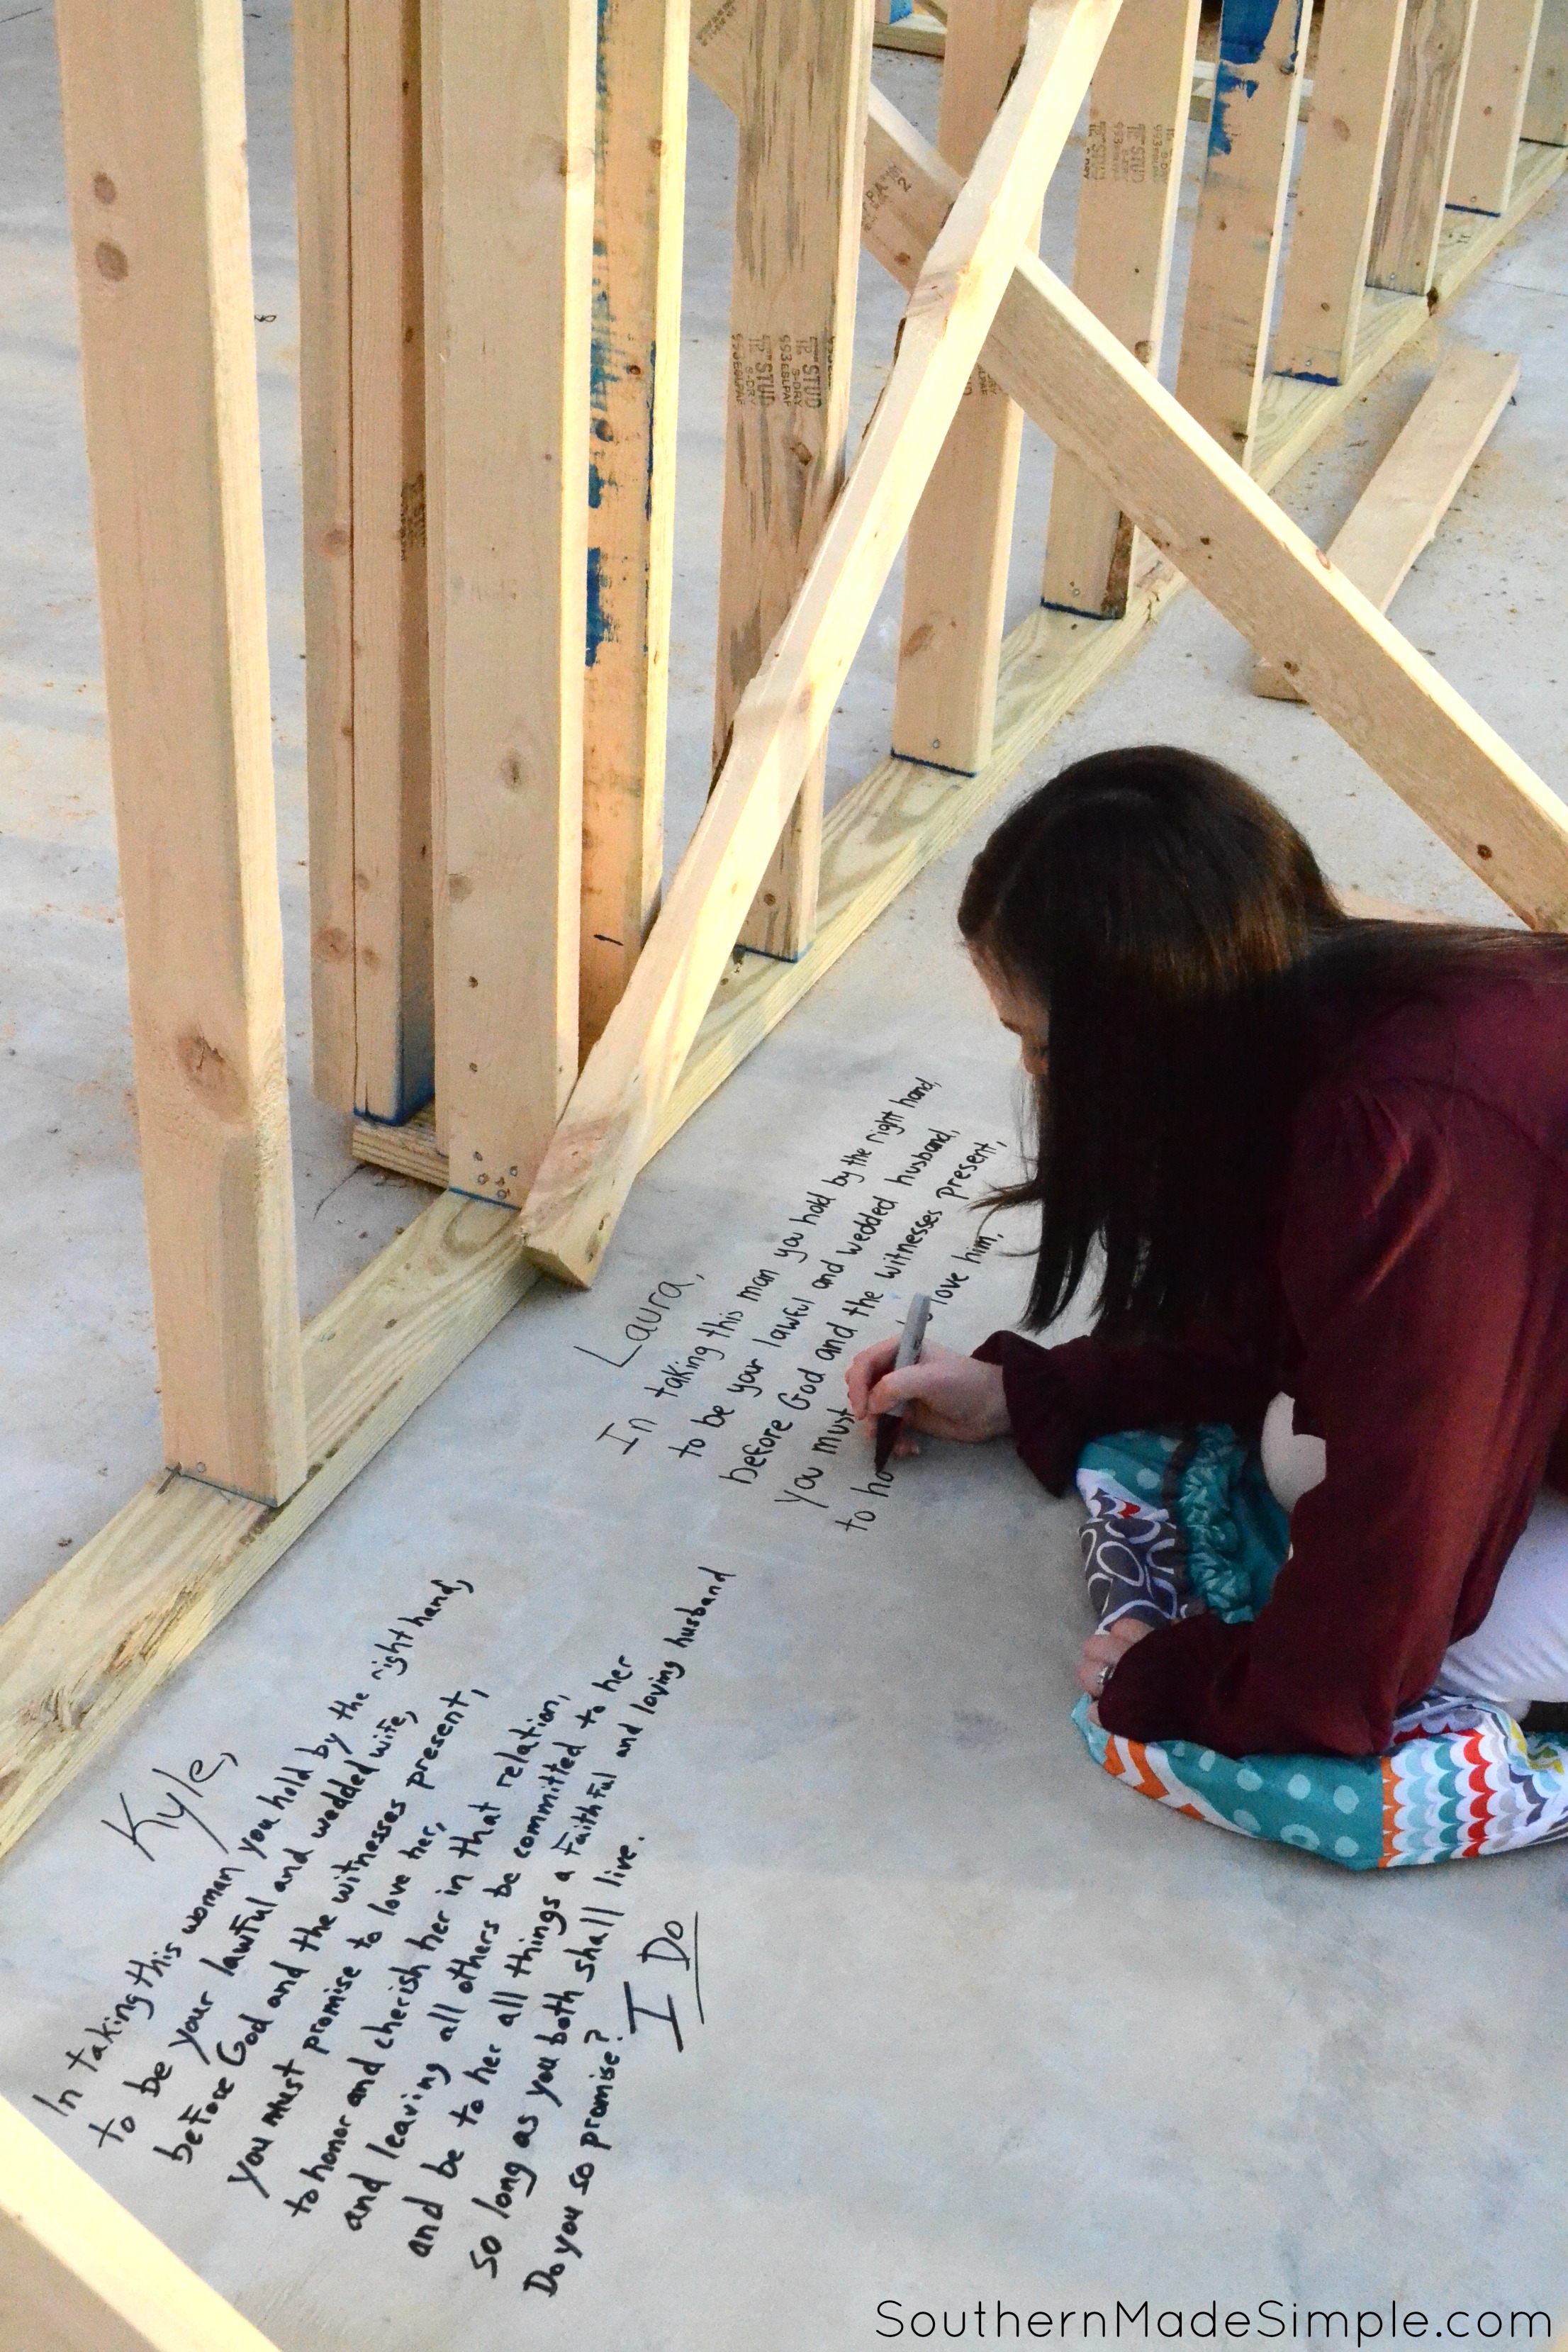 TP STUD
S-DRY
TP STUD
S-DRY
TP STUD
S-DRY
993EBLPAF
TP STUD
S-DRY
993EBLPAF
TP STUD
2
Laura,
In taking this man you hold by the right hand,
to be your lawful and wedded husband,
before God and the witnesses present,
you must love him,
to ho
Kyle,
In taking this woman you hold by the right hand,
to be your lawful and wedded wife,
before God and the witnesses present,
you must promise to love her,
to honor and cherish her in that relation,
and leaving all others be committed to her
and be to her all things a faithful and loving husband
so long as you both shall live.
Do you so promise?
I Do
SouthernMadeSimple.com